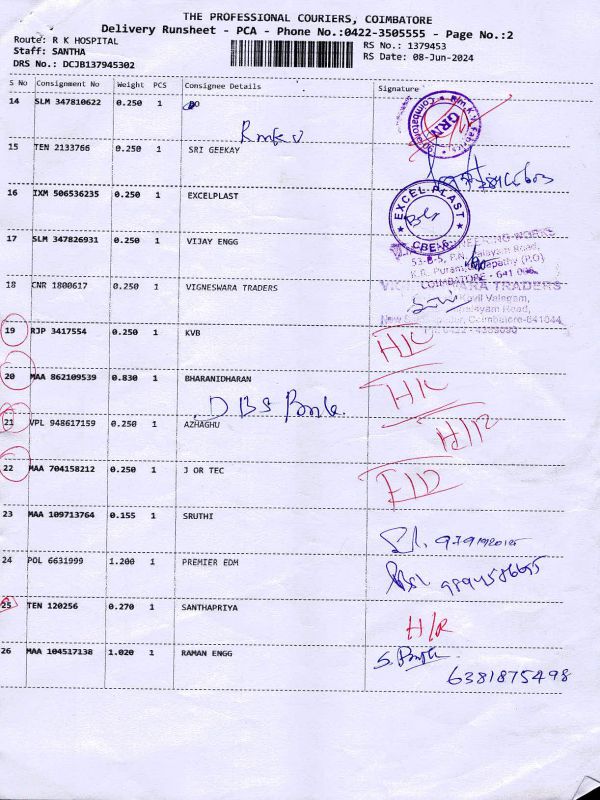 THE PROFESSIONAL COURIERS, COIMBATORE
Delivery Runsheet - PCA - Phone No.:0422-3505555 - Page No.:2
Route: R K HOSPITAL
Staff: SANTHA
DRS No.: DCJB137945302
RS No.: 1379453
RS Date: 08-Jun-2024
S No Consignment No Weight PCS Consignee Details Signature
14 SLM 347810622 0.250 1 DO
GRN
Coimbatore
15 TEN 2133766 0.250 1 SRI GEEKAY
16 IXM 506536235 0.250 1 EXCELPLAST
EXCEL-PLAST
CBE-6
17 SLM 347826931 0.250 1 VIJAY ENGG
ENGINEERING WORKS
53-B-5, P.N. Palayam Road,
K.R. Puram, Ganapathy (P.O)
COIMBATORE - 641 006
18 CNR 1800617 0.250 1 VIGNESWARA TRADERS
TRADERS
19 RJP 3417554 0.250 1 KVB
20 MAA 862109539 0.830 1 BHARANIDHARAN
DBS Bank.
21 VPL 948617159 0.250 1 AZHAGHU
22 MAA 704158212 0.250 1 J OR TEC
23 MAA 109713764 0.155 1 SRUTHI
24 POL 6631999 1.200 1 PREMIER EDM
25 TEN 120256 0.270 1 SANTHAPRIYA
H/R
26 MAA 104517138 1.020 1 RAMAN ENGG
6381875498